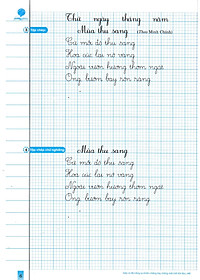 Thứ ngày tháng năm
1 Tập chép
Mùa thu sang (Theo Minh Chính)
Cứ mỗi độ thu sang
Hoa cúc lại nở vàng
Ngoài vườn hương thơm ngát
Ong bướm bay rộn ràng
2 Tập chép chữ nghiêng
Mùa thu sang
Cứ mỗi độ thu sang
Hoa cúc lại nở vàng
Ngoài vườn hương thơm ngát
Ong bướm bay rộn ràng